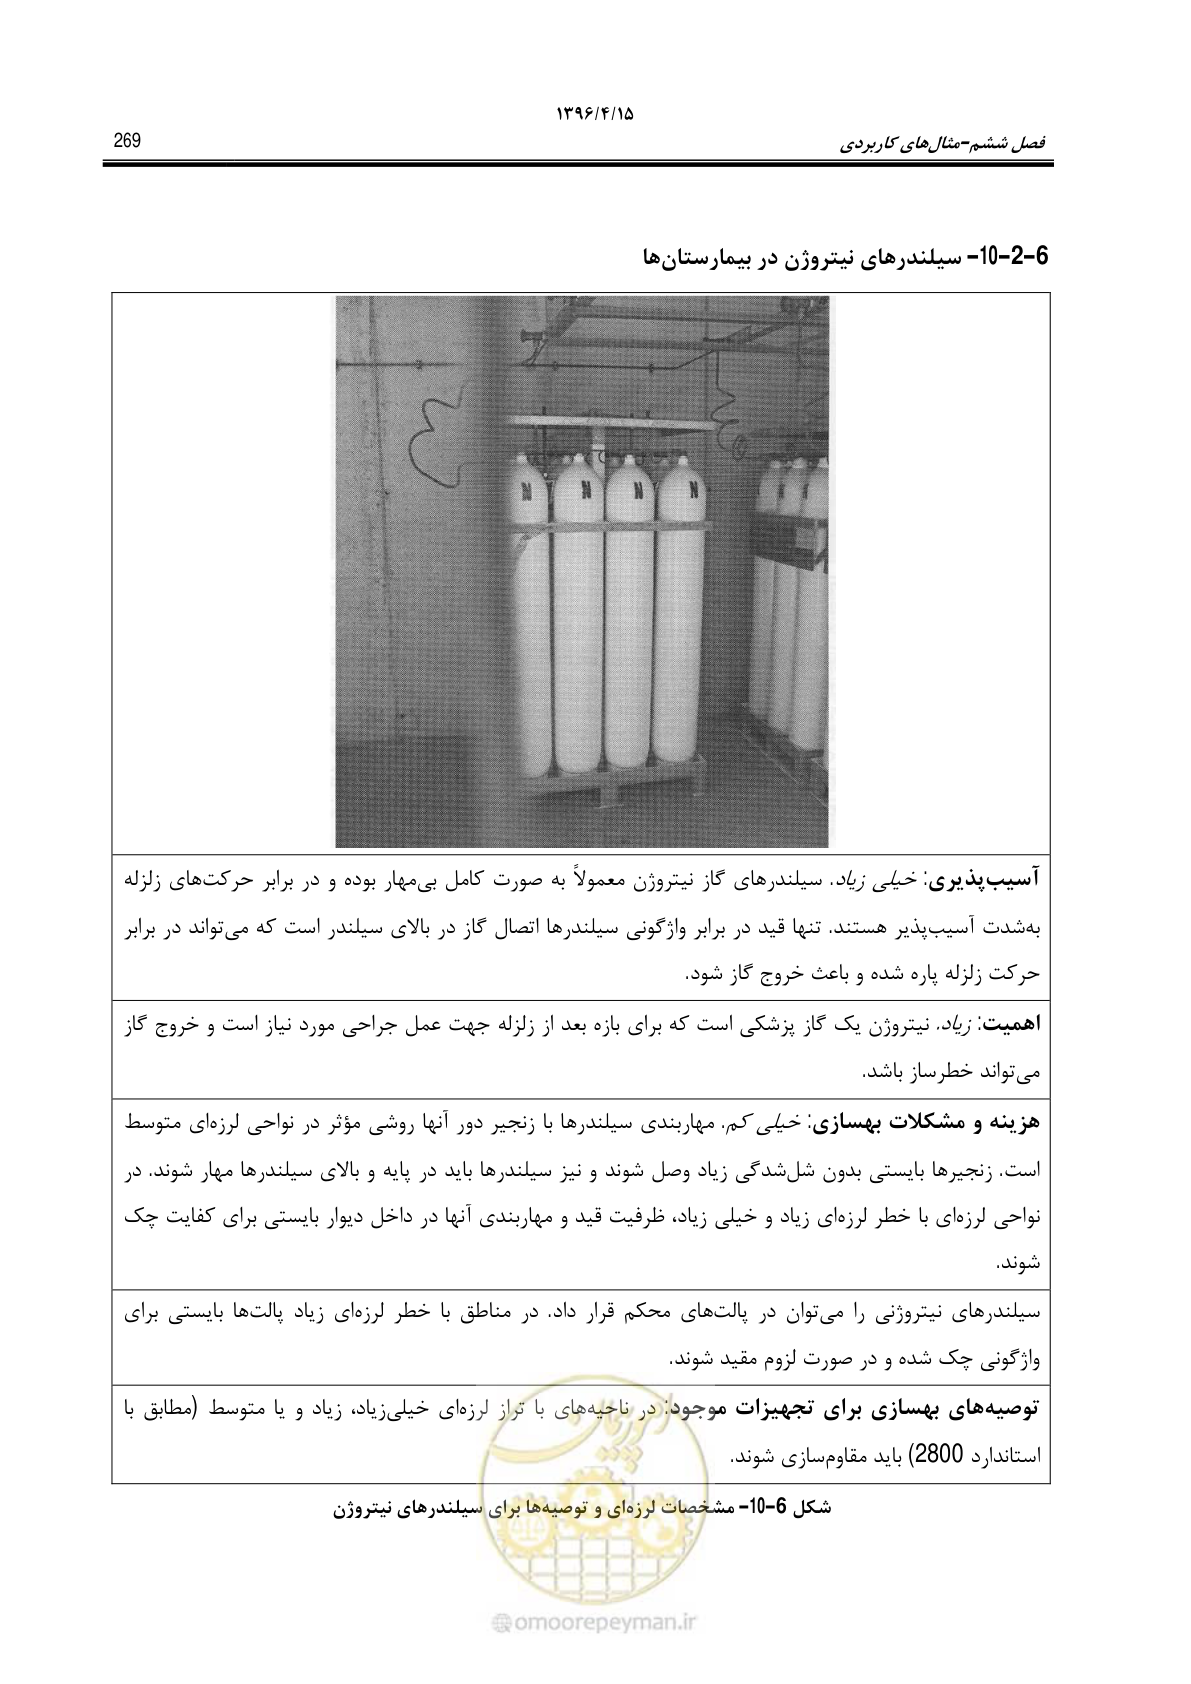 ۱۳۹۶/۴/۱۵
فصل ششم-مثال‌های کاربردی
269
6-2-10- سیلندرهای نیتروژن در بیمارستان‌ها
N N N N
آسیب‌پذیری: خیلی زیاد. سیلندرهای گاز نیتروژن معمولاً به صورت کامل بی‌مهار بوده و در برابر حرکت‌های زلزله
به‌شدت آسیب‌پذیر هستند. تنها قید در برابر واژگونی سیلندرها اتصال گاز در بالای سیلندر است که می‌تواند در برابر
حرکت زلزله پاره شده و باعث خروج گاز شود.
اهمیت: زیاد. نیتروژن یک گاز پزشکی است که برای بازه بعد از زلزله جهت عمل جراحی مورد نیاز است و خروج گاز
می‌تواند خطرساز باشد.
هزینه و مشکلات بهسازی: خیلی کم. مهاربندی سیلندرها با زنجیر دور آنها روشی مؤثر در نواحی لرزه‌ای متوسط
است. زنجیرها بایستی بدون شل‌شدگی زیاد وصل شوند و نیز سیلندرها باید در پایه و بالای سیلندرها مهار شوند. در
نواحی لرزه‌ای با خطر لرزه‌ای زیاد و خیلی زیاد، ظرفیت قید و مهاربندی آنها در داخل دیوار بایستی برای کفایت چک
شوند.
سیلندرهای نیتروژنی را می‌توان در پالت‌های محکم قرار داد. در مناطق با خطر لرزه‌ای زیاد پالت‌ها بایستی برای
واژگونی چک شده و در صورت لزوم مقید شوند.
توصیه‌های بهسازی برای تجهیزات موجود: در ناحیه‌های با تراز لرزه‌ای خیلی‌زیاد، زیاد و یا متوسط (مطابق با
استاندارد 2800) باید مقاوم‌سازی شوند.
شکل 6-10- مشخصات لرزه‌ای و توصیه‌ها برای سیلندرهای نیتروژن
امور پیمان
@omoorepeyman.ir